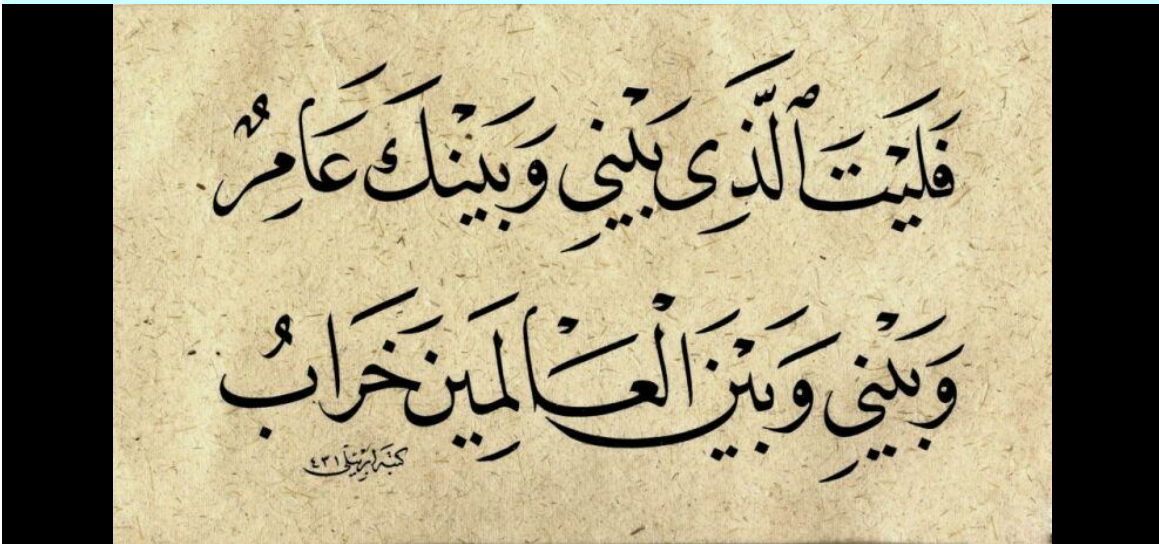 فَلَيْتَ ٱلَّذِى بَيْنِي وَبَيْنَكَ عَامِرٌ
وَبَيْنِي وَبَيْنَ الْعَالَمِينَ خَرَابُ
كتبه ٤٣١